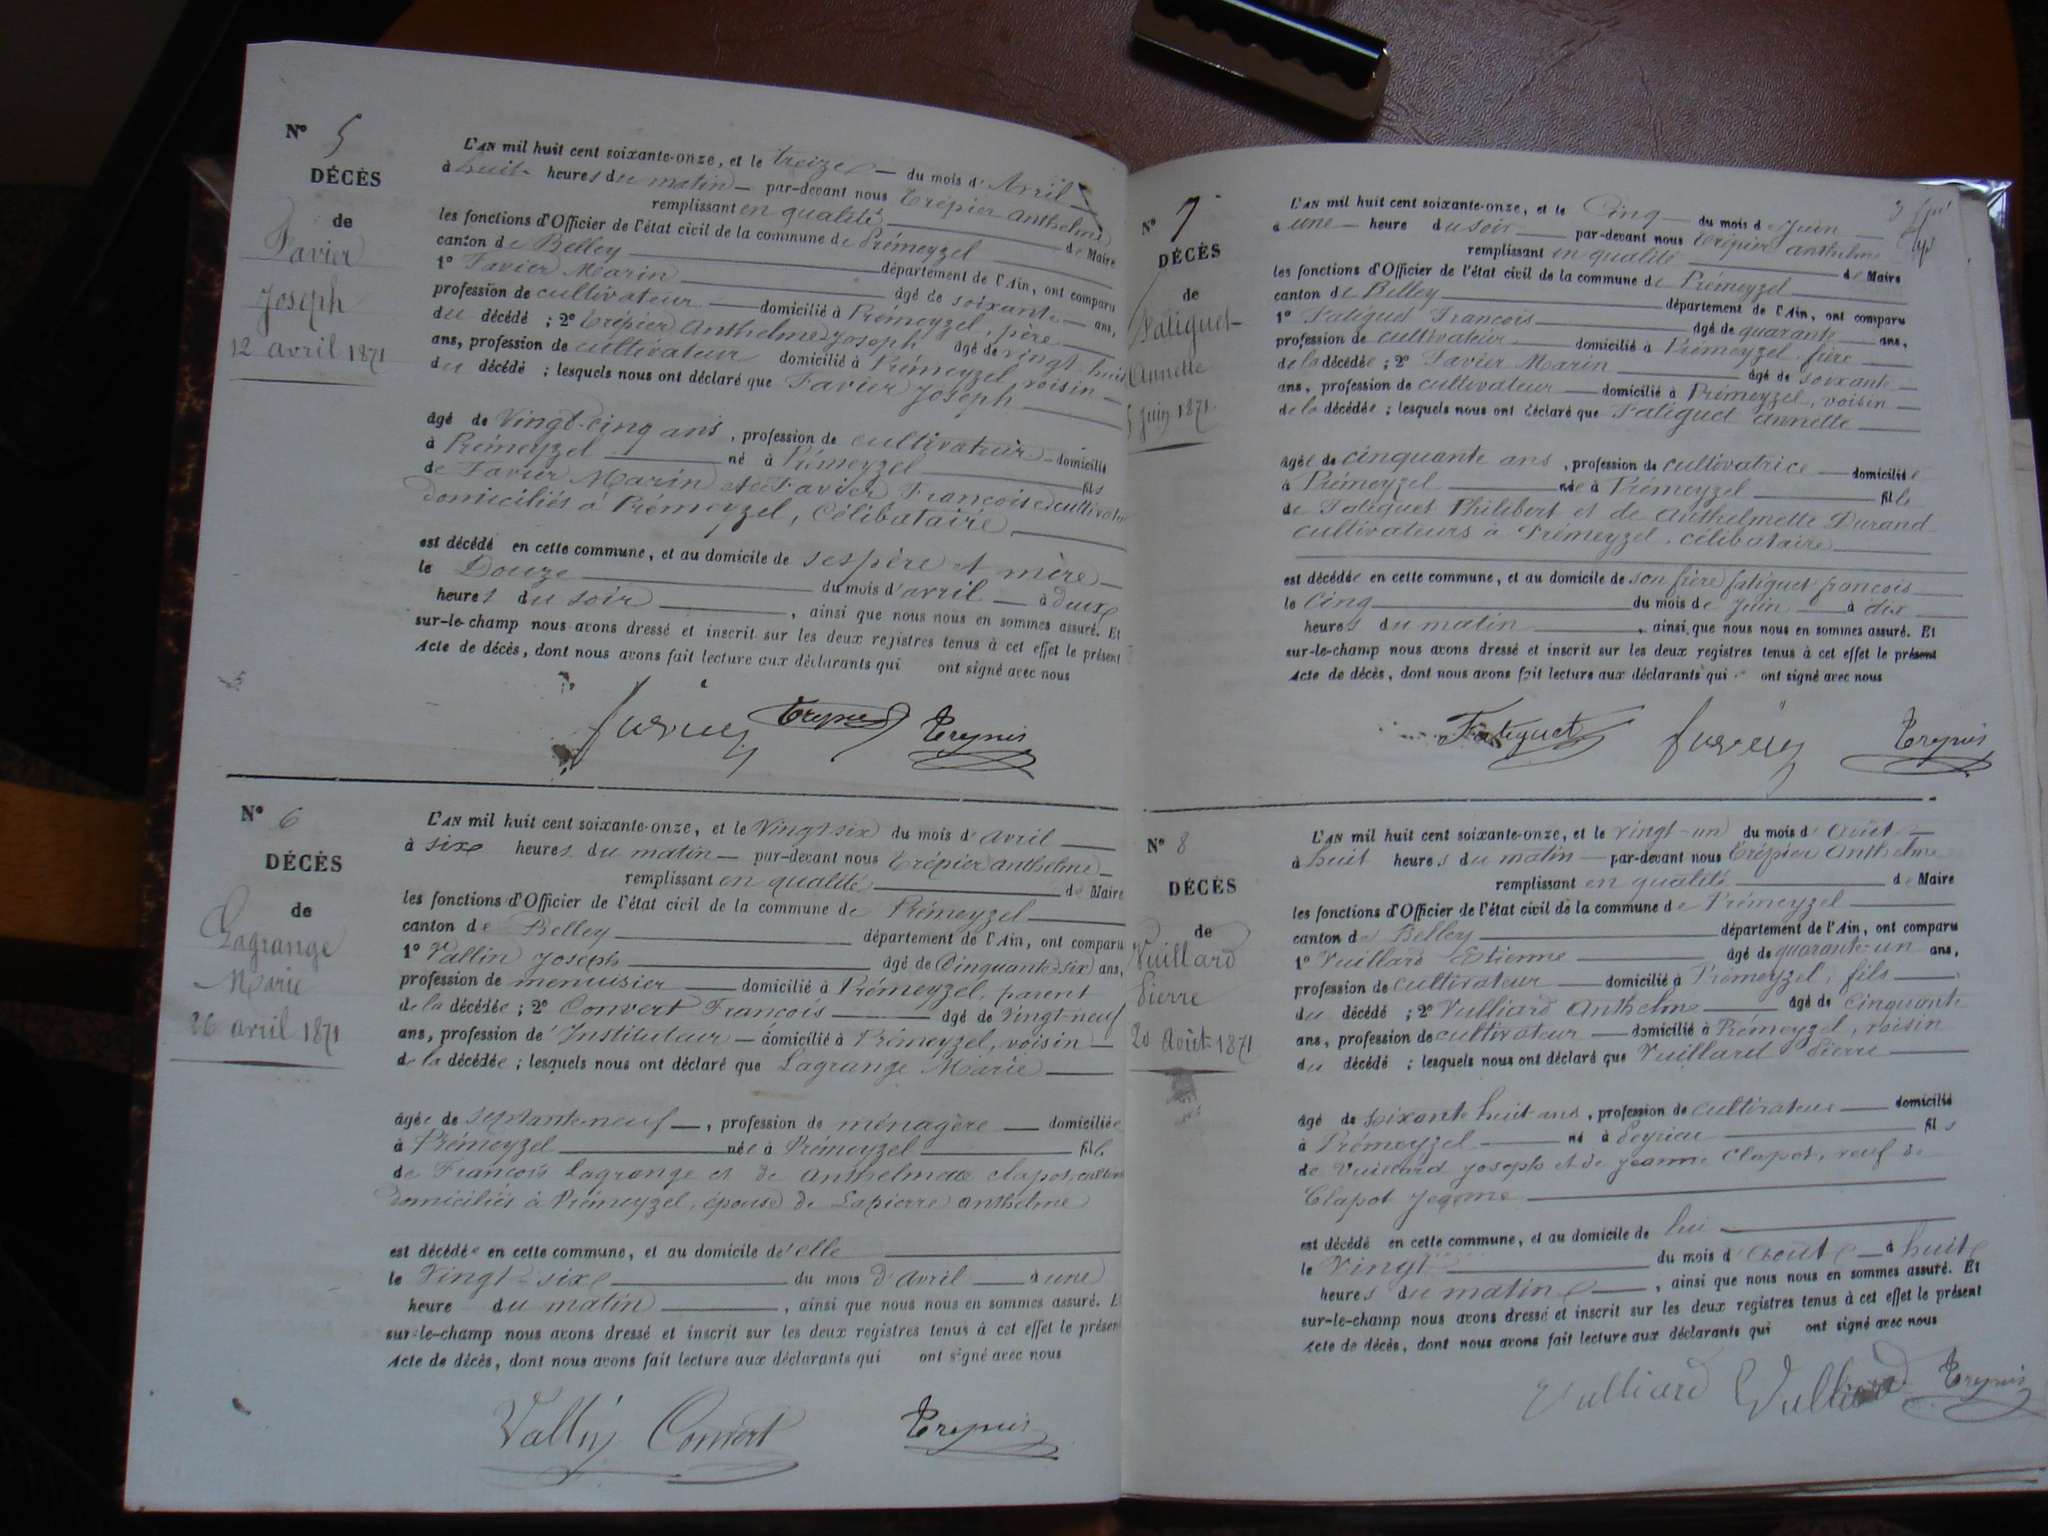 N° 5
DÉCÈS
de
Favier
Joseph
12 avril 1871
L'AN mil huit cent soixante-onze, et le treize du mois d'Avril
à huit heures du matin par-devant nous Trépier Anthelme
remplissant en qualité de Maire
les fonctions d'Officier de l'état civil de la commune de Prémeyzel
canton de Belley département de l'Ain, ont comparu
1° Favier Marin âgé de soixante ans,
profession de cultivateur domicilié à Prémeyzel, père
du décédé ; 2° Trépier Anthelme Joseph âgé de vingt-huit
ans, profession de cultivateur domicilié à Prémeyzel, voisin
du décédé ; lesquels nous ont déclaré que Favier Joseph
âgé de Vingt-cinq ans, profession de cultivateur domicilié
à Prémeyzel né à Prémeyzel fils
de Favier Marin et de Favier Françoise cultivateurs
domiciliés à Prémeyzel, Célibataire
est décédé en cette commune, et au domicile de ses père et mère
le Douze du mois d'avril à deux
heures du soir, ainsi que nous nous en sommes assuré. Et
sur-le-champ nous avons dressé et inscrit sur les deux registres tenus à cet effet le présent
Acte de décès, dont nous avons fait lecture aux déclarants qui ont signé avec nous
Favier Trepier Trepier
N° 6
DÉCÈS
de
Lagrange
Marie
26 avril 1871
L'AN mil huit cent soixante-onze, et le Vingt-six du mois d'avril
à six heures du matin par-devant nous Trépier anthelme
remplissant en qualité de Maire
les fonctions d'Officier de l'état civil de la commune de Prémeyzel
canton de Belley département de l'Ain, ont comparu
1° Vallin Joseph âgé de Cinquante-six ans,
profession de menuisier domicilié à Prémeyzel, parent
de la décédée ; 2° Convert François âgé de Vingt-neuf
ans, profession d'Instituteur domicilié à Prémeyzel, voisin
de la décédée ; lesquels nous ont déclaré que Lagrange Marie
âgée de septante-neuf, profession de ménagère domiciliée
à Prémeyzel née à Prémeyzel fille
de François Lagrange et de Anthelmette Clapot,
domiciliés à Prémeyzel, épouse de Lapierre anthelme
est décédée en cette commune, et au domicile d'elle
le Vingt-six du mois d'avril à une
heure du matin, ainsi que nous nous en sommes assuré. Et
sur-le-champ nous avons dressé et inscrit sur les deux registres tenus à cet effet le présent
Acte de décès, dont nous avons fait lecture aux déclarants qui ont signé avec nous
Vallin Convert Trepier
N° 7
DÉCÈS
de
Fatiguet
Annette
5 Juin 1871
L'AN mil huit cent soixante-onze, et le Cinq du mois de Juin
à une heure du soir par-devant nous Trépier anthelme
remplissant en qualité de Maire
les fonctions d'Officier de l'état civil de la commune de Prémeyzel
canton de Belley département de l'Ain, ont comparu
1° Fatiguet François âgé de quarante ans,
profession de cultivateur domicilié à Prémeyzel, frère
de la décédée ; 2° Favier Marin âgé de soixante
ans, profession de cultivateur domicilié à Prémeyzel, voisin
de la décédée ; lesquels nous ont déclaré que Fatiguet Annette
âgée de cinquante ans, profession de cultivatrice domiciliée
à Prémeyzel née à Prémeyzel fille
de Fatiguet Philibert et de Anthelmette Durand
cultivateurs à Prémeyzel, célibataire
est décédée en cette commune, et au domicile de son frère fatiguet françois
le Cinq du mois de Juin à dix
heures du matin, ainsi que nous nous en sommes assuré. Et
sur-le-champ nous avons dressé et inscrit sur les deux registres tenus à cet effet le présent
Acte de décès, dont nous avons fait lecture aux déclarants qui ont signé avec nous
Fatiguet Favier Trepier
N° 8
DÉCÈS
de
Vuillard
Pierre
20 Août 1871
L'AN mil huit cent soixante-onze, et le vingt-un du mois d'Août
à huit heures du matin par-devant nous Trépier Anthelme
remplissant en qualité de Maire
les fonctions d'Officier de l'état civil de la commune de Prémeyzel
canton de Belley département de l'Ain, ont comparu
1° Vuillard Etienne âgé de quarante-un ans,
profession de cultivateur domicilié à Prémeyzel, fils
du décédé ; 2° Vulliard Anthelme âgé de Cinquante
ans, profession de cultivateur domicilié à Prémeyzel, voisin
du décédé ; lesquels nous ont déclaré que Vuillard Pierre
âgé de soixante huit ans, profession de cultivateur domicilié
à Prémeyzel né à Peyrieu fils
de Vuillard Joseph et de Jeanne Clapot, veuf de
Clapot Jeanne
est décédé en cette commune, et au domicile de lui
le Vingt du mois d'Août à huit
heures du matin, ainsi que nous nous en sommes assuré. Et
sur-le-champ nous avons dressé et inscrit sur les deux registres tenus à cet effet le présent
Acte de décès, dont nous avons fait lecture aux déclarants qui ont signé avec nous
Vulliard Vulliard Trepier